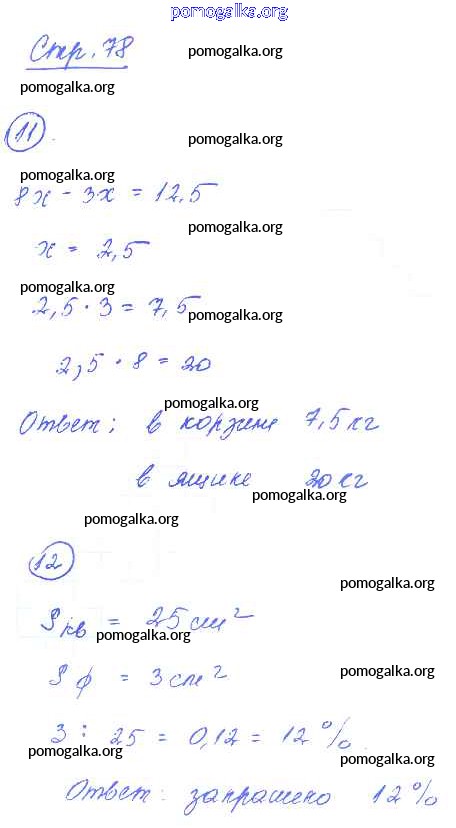 pomogalka.org
Стр. 78
pomogalka.org
pomogalka.org
11.
pomogalka.org
pomogalka.org
8х - 3х = 12,5
pomogalka.org
х = 2,5
pomogalka.org
2,5 · 3 = 7,5
pomogalka.org
2,5 · 8 = 20
pomogalka.org
Ответ: в корзине 7,5 кг
в ящике 20 кг
pomogalka.org
pomogalka.org
12
pomogalka.org
Sкв = 25 см²
pomogalka.org
Sф = 3 см²
pomogalka.org
3 : 25 = 0,12 = 12 %.
pomogalka.org
pomogalka.org
Ответ: закрашено 12 %